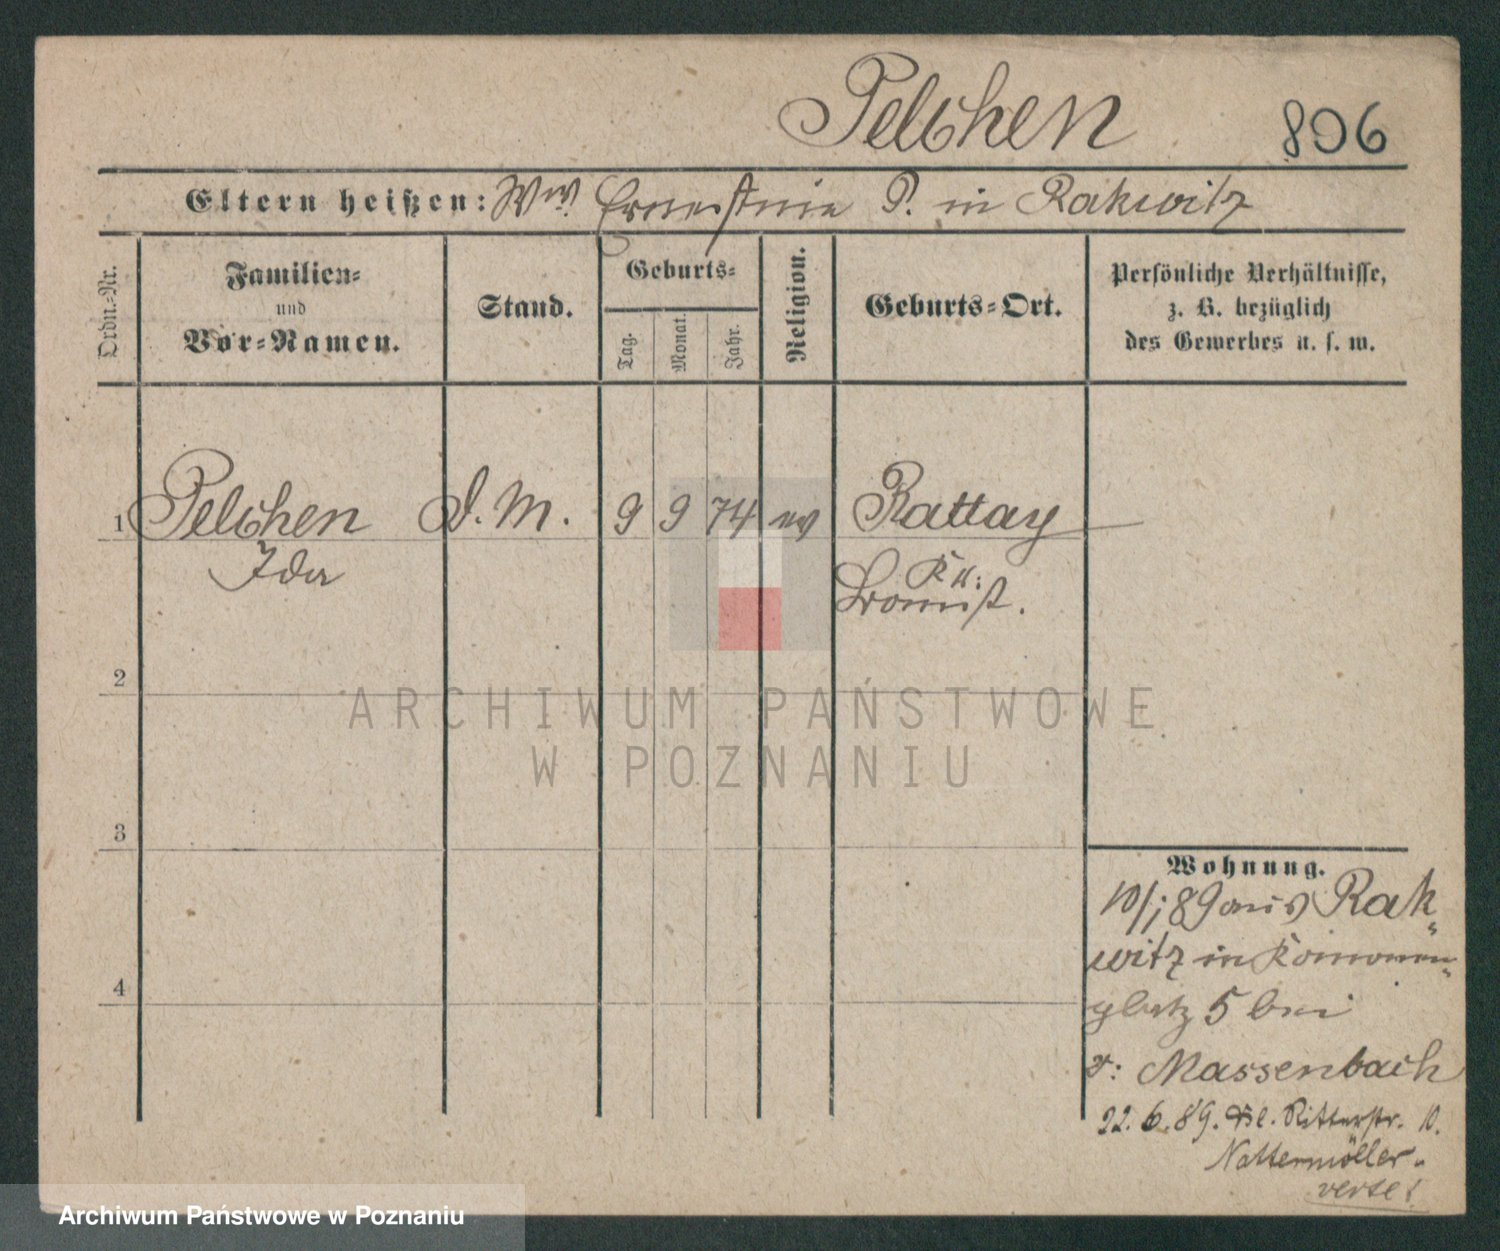 Pelchen 806
Eltern heißen: Ww. Ernestine P. in Rakwitz
Ordn.-Nr.
Familien-
und
Vor-Namen.
Stand.
Geburts-
Tag.
Monat.
Jahr.
Religion.
Geburts-Ort.
Persönliche Verhältnisse,
z. B. bezüglich
des Gewerbes u. s. w.
1 Pelchen D. M. 9 9 74 ev Rattay
Ida Kr:
Bomst.
2
3
4
Wohnung.
10/1 89 aus Rak-
witz in Kanonen-
platz 5 bei
v: Massenbach
22. 6. 89. Ritterstr. 10.
Nattermöller.
verte!
ARCHIWUM PAŃSTWOWE
W POZNANIU
Archiwum Państwowe w Poznaniu